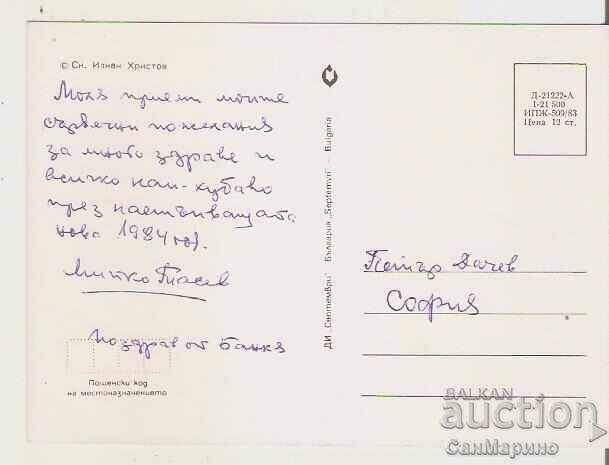 © Сн. Илиан Христов
Моля приеми моите
сърдечни пожелания
за много здраве и
всичко най-хубаво
през настъпващата
нова 1984 год.
Митко
Поздрав от Банкя
Пощенски код
на местоназначението
ДИ „Септември" България „Septemvri" — Bulgaria
Д-21222-А
I-21 500
ИПЖ-509/83
Цена 12 ст.
Петър Дачев
София
BALKAN
auction
СанМарино